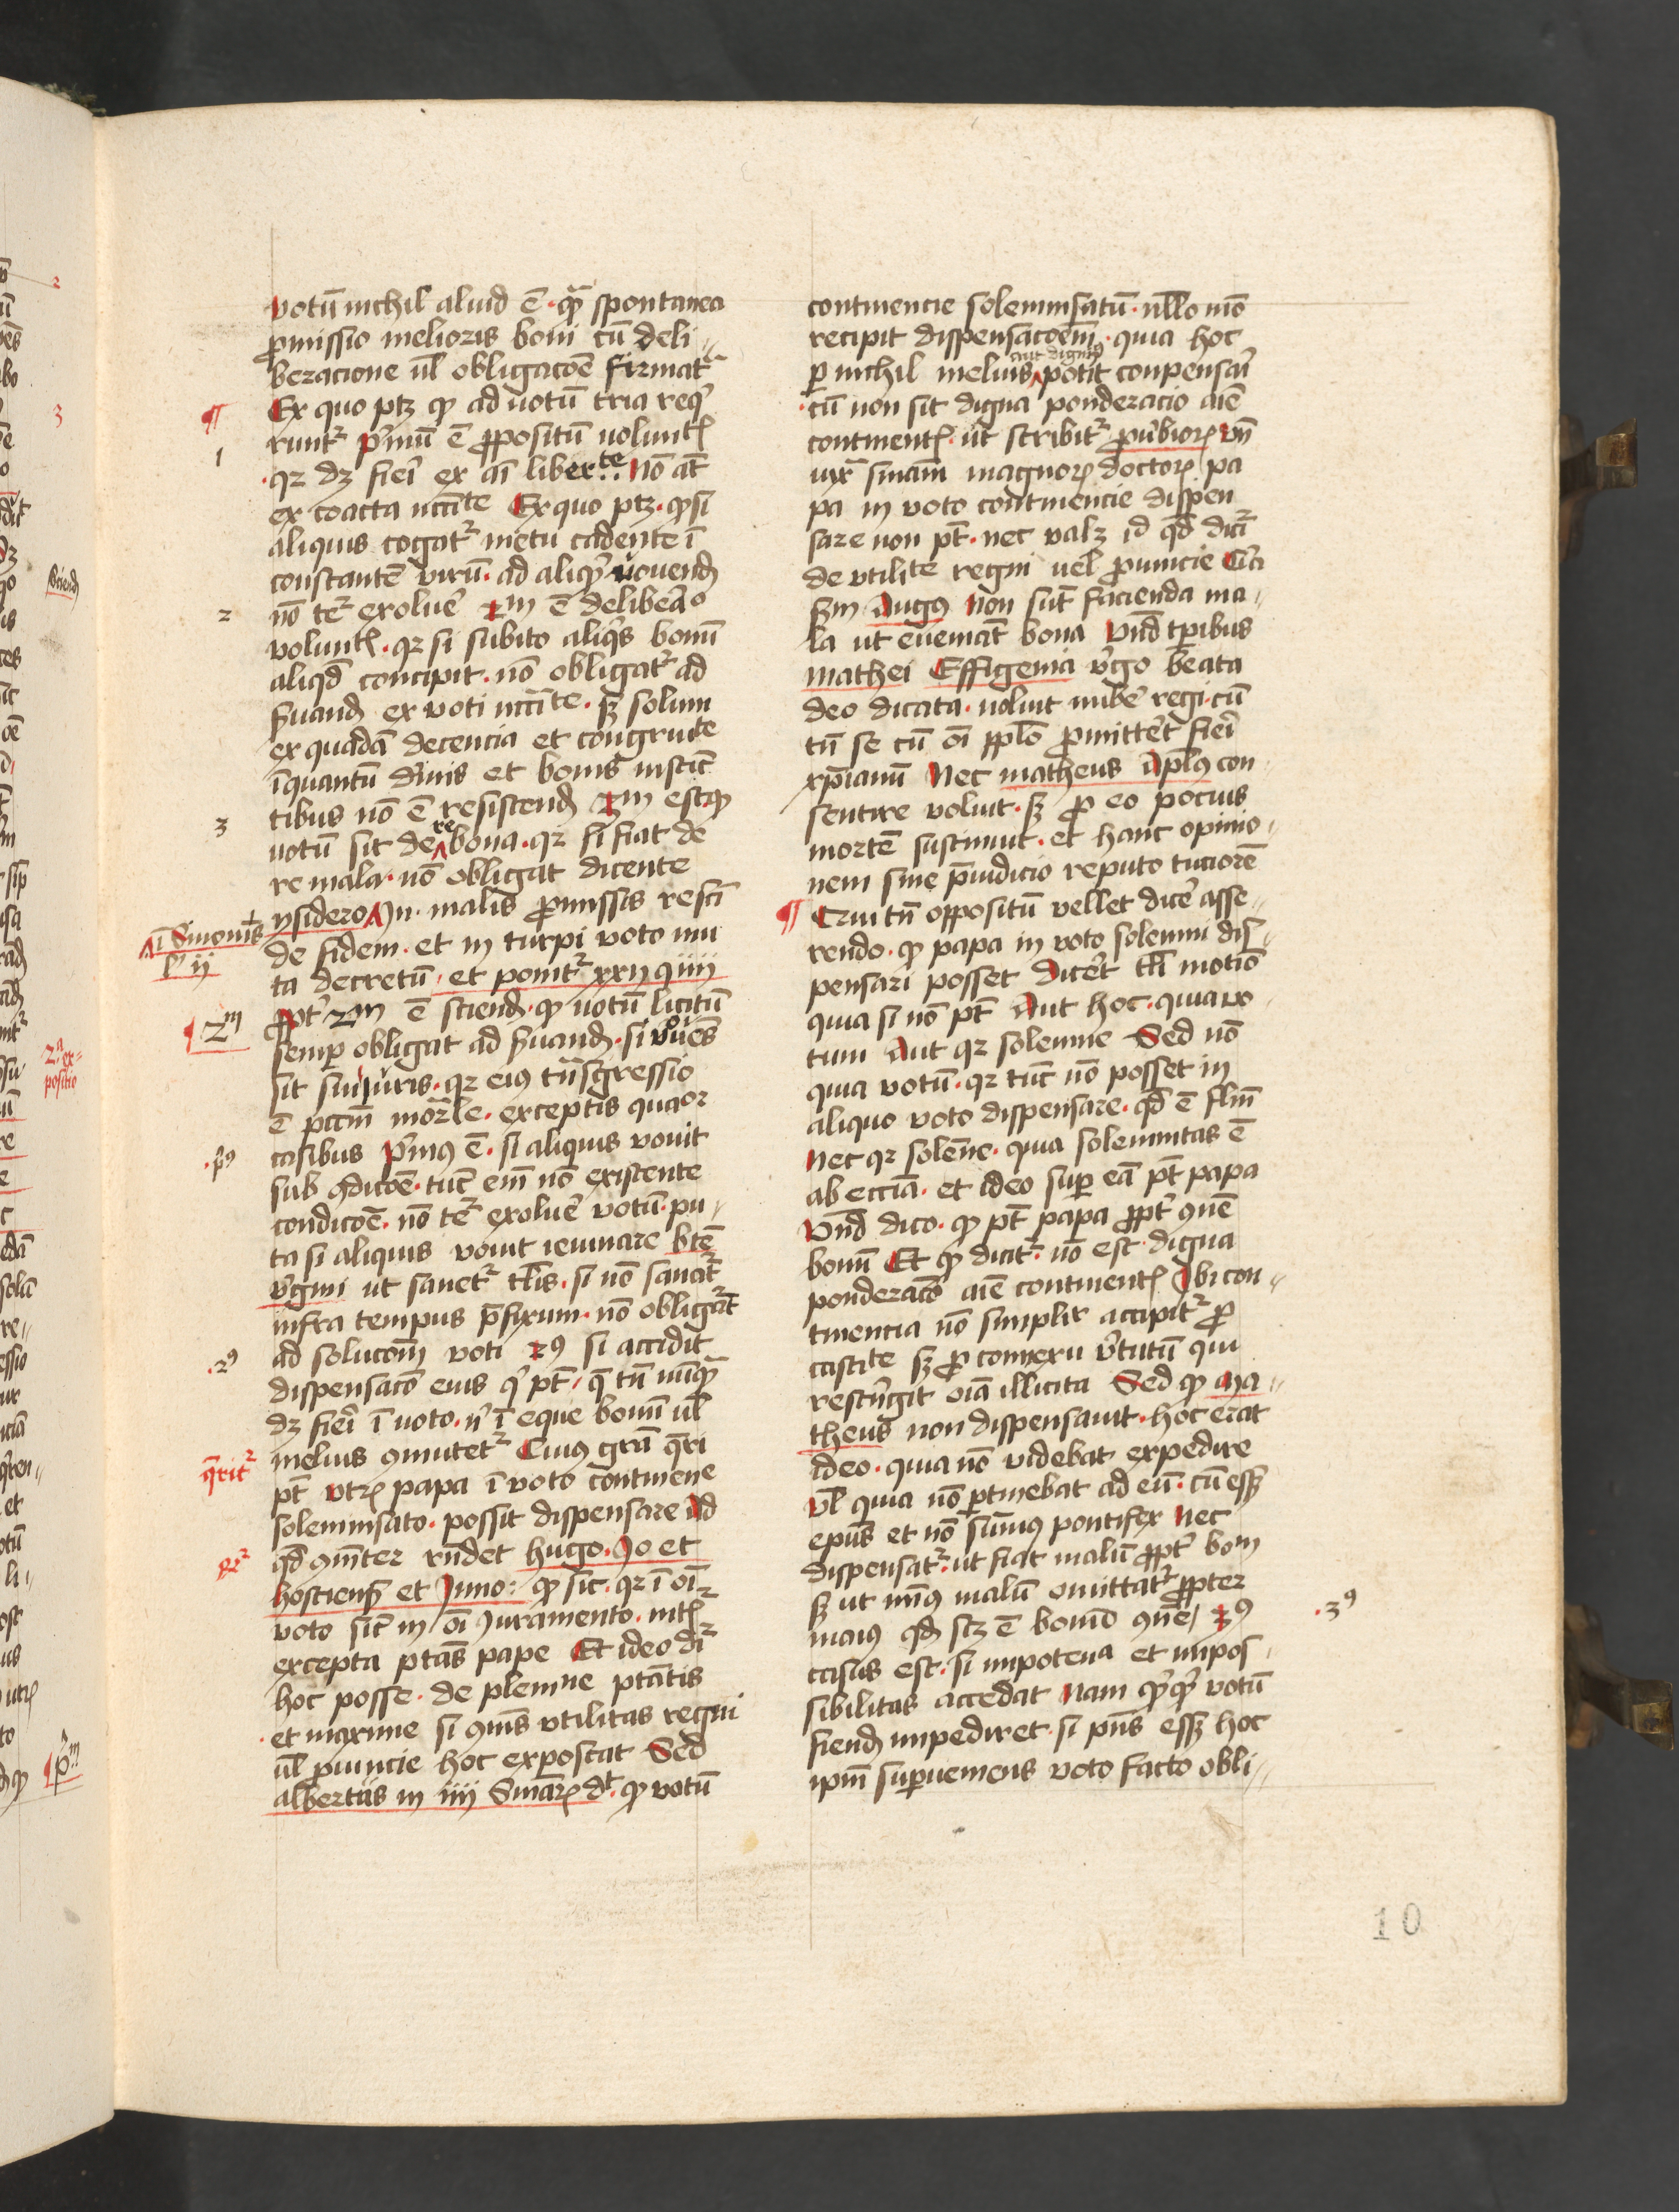 votū nichil aliud ē · qȝ spontanea
ꝓmissio melioris boni cū deli⸗
beracione ul̄ obligacōe firmatr̄
Ex quo ptꝫ ꝙ ad uotū tria reqͥ
runtr̄ pͥmū ē ꝓpositū uoluntꝭ
· qꝛ dꝫ fieri ex libertͣte Nō at̄
ex coacta nccͥ̄te Ex quo ptꝫ · ꝙ si
aliquis cogatr̄ metu cadente ī
constantē virū · ad aliqͥ uouendꝫ
nō tꝛ̄ exoluē 2m ē delibēaͦ
voluntꝭ · qꝛ si subito aliqͥs bonū
aliqͥd concipit · nō obligatr̄ ad
ẜuandꝫ ex voti nccͥ̄te · sꝫ solum
ex quadā decencia et congruite
īquantū diuis et bonis instīc
tibus nō ē resistendꝫ 3m est ꝙ
uotū sit de re bona · qꝛ si fiat de
re mala · nō obligat dicente
ysidero In malis ꝓmissis resci
de fidem · et in turpi voto mu
ta decretū · et ponitr̄ xxij q iiij
ꝓpt̄ 2m ē sciendꝫ · ꝙ uotū licitū
semꝑ obligat ad ẜuandꝫ · si vouēs
sit sui iuris · qꝛ eiꝰ tn̄sgressio
ē pccm̄ mor̄le · exceptis quaor
casibus pͥmꝰ ē · si aliquis vouit
sub ꝯdicōe · tūc em̄ nō existente
condicōē · nō tꝛ̄ exoluē votū · pu⸗
ta si aliquis vouit ieiunare btē
vͥgini ut sanetr̄ tl̄is · si nō sanatr̄
infra tempus p̄fixum · nō obligat̄
ad solucōm̄ voti 2ꝰ si accidit
dispensacō eius qͥ pt̄ · q̄ tn̄ nūqȝ
dꝫ fieri ī uoto · nͥ ī eque bonū ul̄
melius ꝯmutetr̄ Cuiꝰ gr̄a q̄ri
pt̄ vtꝝ papa ī voto continēne
solemnsato · possit dispensare Ad
qd̄ ꝯmīter rn̄det hugo · Jo et
hostiensꝭ et Inno : ꝙ sic · qꝛ ī oī
voto sic̄ in oī iuramento · intꝭ
excepta ptās pape Et ideo dr̄
hoc posse · de plenine ptātis
· et maxime si ꝯmīs vtilitas regni
ul̄ ꝓuincie hoc exposcat Sed
albertus in iiij Sniaꝝ dt · ꝙ votū
¶
1
2
3
ī Sinonis
lͥ ij
2m
· pͥꝰ
· 2ꝰ
q̄ritr̄
continencie solemnsatū · nllo mō
recipit dispensacōem̄ · quia hoc
ꝑ nichil melius aut dignius potit conpensari
· cū non sit digna ponderacio aīe
continentꝭ · ut scribitr̄ ꝓūbioꝝ Vn̄
iuxͣ sniam̄ magnoꝝ doctoꝝ pa
pa in voto continencie dispen
sare non pt̄ · nec valꝫ id qd̄ dicr̄
de vtilite regni uel ꝓuincie Cͥa
sꝫm Augꝰ Non sūt facienda ma⸗
la ut eueniāt bona Vnd̄ tꝑibus
mathei Effigenia vͥgo beata
deo dicata · noluit nubē regi · cū
tn̄ se cū oī pplō ꝓmittēt fieri
xp̄ianū Nec matheus Apl̄ꝰ con⸗
sentire voluit · sꝫ ꝓ eo pocius
mortē sustinuit · et hanc opinio⸗
nem sine p̄iudicio reputo tuciorē
¶ Cui tn̄ oppositū vellet dicē asse⸗
rendo · ꝙ papa in voto solemni dis⸗
pensari posset Dicēt tl̄i motiō
quia si nō pt̄ Aut hoc · quia vo⸗
tum Aut qꝛ solemne Sed nō
quia votū · qꝛ tūc nō posset in
aliquo voto dispensare · qd̄ ē flm̄
Nec qꝛ solēne · quia solemnitas ē
ab eccīa · et ideo suꝑ eā pt̄ papa
Vnd̄ dico · ꝙ pt̄ papa ꝓpt̄ ꝯuē
bonū Et ꝙ dicitr̄ · nō est digna
ponderacō aīe continentꝭ Ibi con⸗
tinencia nō simplīr accipitr̄ ꝓ
castite sꝫ ꝓ connexu vͥtutū qui
restͥngit oīa illicita Sed ꝙ Ma⸗
theus non dispensauit · hoc erat
ideo · quia nō videbat expedire
Vl̄ quia nō ꝑtinebat ad eū · cū esꝫ
epūs et nō sūmꝰ pontifex Nec
dispensatr̄ · ut fiat malū ꝓpt̄ bom
sꝫ ut minꝰ malū omittatr̄ ꝓpter
maiꝰ qd̄ scꝫ ē bonūō ꝯūe 3ꝰ
casus est · si impotencia et impos⸗
sibilitas accedat Nam qͥqͥ votū
fiendꝫ impediret · si pn̄s esꝫ hoc
ipm̄ suꝑueniens voto facto obli⸗
· 3ꝰ
10